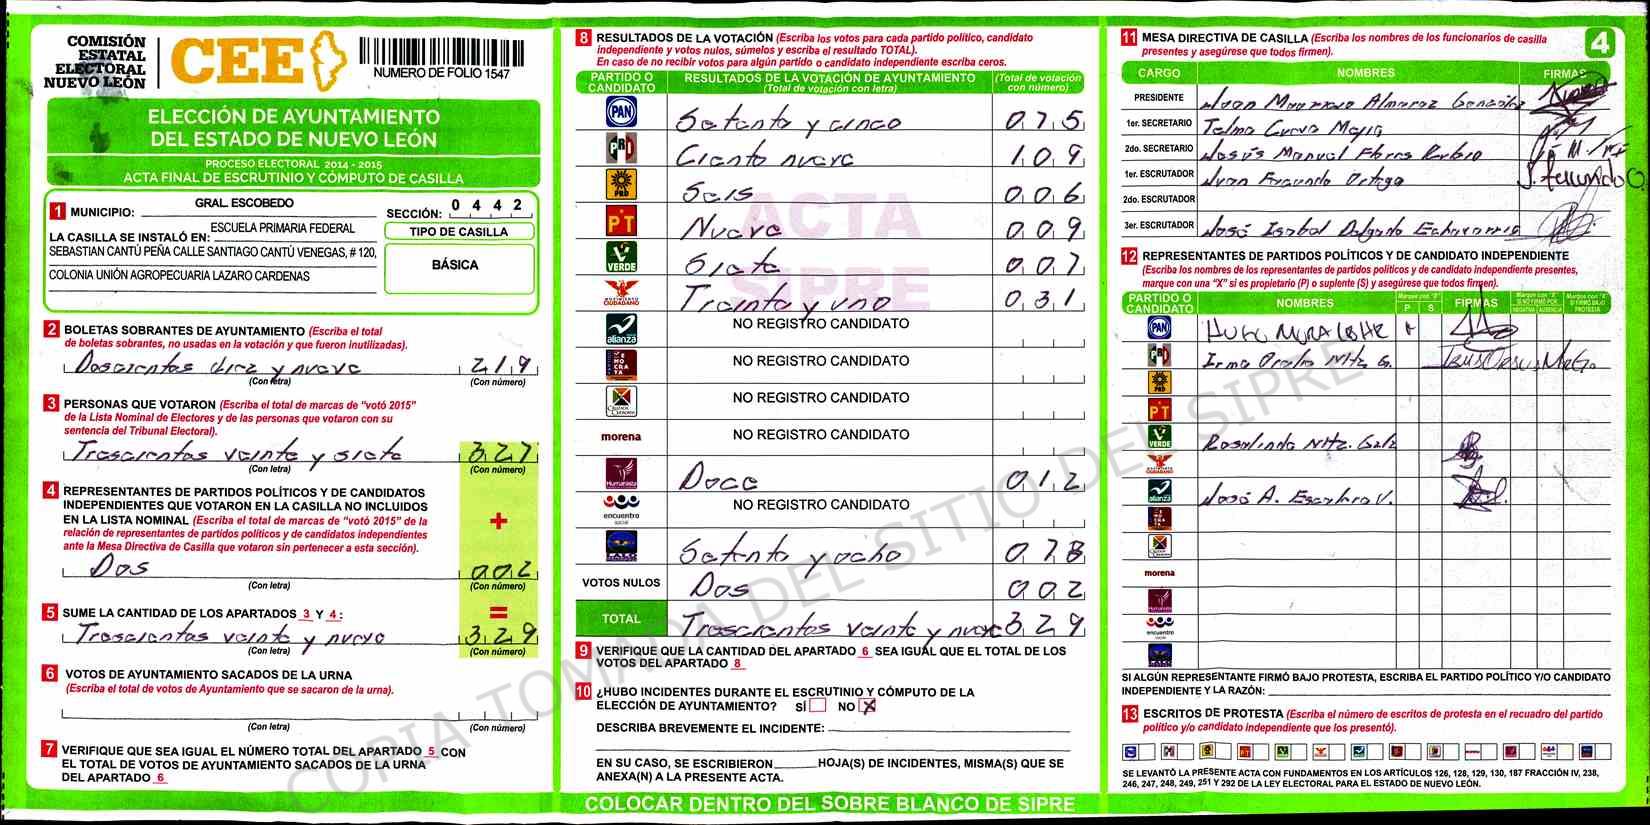 COMISIÓN
ESTATAL
ELECTORAL
NUEVO LEÓN
CEE
NUMERO DE FOLIO 1547
ELECCIÓN DE AYUNTAMIENTO
DEL ESTADO DE NUEVO LEÓN
PROCESO ELECTORAL 2014 - 2015
ACTA FINAL DE ESCRUTINIO Y CÓMPUTO DE CASILLA
1 MUNICIPIO: GRAL. ESCOBEDO
SECCIÓN: 0 4 4 2
LA CASILLA SE INSTALÓ EN: ESCUELA PRIMARIA FEDERAL
SEBASTIAN CANTÚ PEÑA CALLE SANTIAGO CANTÚ VENEGAS, # 120,
COLONIA UNIÓN AGROPECUARIA LAZARO CARDENAS
TIPO DE CASILLA
BÁSICA
2 BOLETAS SOBRANTES DE AYUNTAMIENTO (Escriba el total
de boletas sobrantes, no usadas en la votación y que fueron inutilizadas).
Doscientos diez y nueve 219
(Con letra) (Con número)
3 PERSONAS QUE VOTARON (Escriba el total de marcas de "votó 2015"
de la Lista Nominal de Electores y de las personas que votaron con su
sentencia del Tribunal Electoral).
Trescientos veinte y siete 327
(Con letra) (Con número)
4 REPRESENTANTES DE PARTIDOS POLÍTICOS Y DE CANDIDATOS
INDEPENDIENTES QUE VOTARON EN LA CASILLA NO INCLUIDOS
EN LA LISTA NOMINAL (Escriba el total de marcas de "votó 2015" de la
relación de representantes de partidos políticos y de candidatos independientes
ante la Mesa Directiva de Casilla que votaron sin pertenecer a esta sección).
+
Dos 002
(Con letra) (Con número)
5 SUME LA CANTIDAD DE LOS APARTADOS 3 Y 4: =
Trescientos veinte y nueve 329
(Con letra) (Con número)
6 VOTOS DE AYUNTAMIENTO SACADOS DE LA URNA
(Escriba el total de votos de Ayuntamiento que se sacaron de la urna).
(Con letra) (Con número)
7 VERIFIQUE QUE SEA IGUAL EL NÚMERO TOTAL DEL APARTADO 5 CON
EL TOTAL DE VOTOS DE AYUNTAMIENTO SACADOS DE LA URNA
DEL APARTADO 6
8 RESULTADOS DE LA VOTACIÓN (Escriba los votos para cada partido político, candidato
independiente y votos nulos, súmelos y escriba el resultado TOTAL).
En caso de no recibir votos para algún partido o candidato independiente escriba ceros.
PARTIDO O CANDIDATO RESULTADOS DE LA VOTACIÓN DE AYUNTAMIENTO (Total de votación con letra) (Total de votación con número)
PAN Setenta y cinco 075
PRI Ciento nueve 109
PRD Seis 006
PT Nueve 009
VERDE Siete 007
MOVIMIENTO CIUDADANO Treinta y uno 031
alianza NO REGISTRO CANDIDATO
NO REGISTRO CANDIDATO
NO REGISTRO CANDIDATO
morena NO REGISTRO CANDIDATO
Humanista Doce 012
encuentro social NO REGISTRO CANDIDATO
Setenta y ocho 078
VOTOS NULOS Dos 002
TOTAL Trescientos veinte y nueve 329
ACTA
SIPRE
9 VERIFIQUE QUE LA CANTIDAD DEL APARTADO 6 SEA IGUAL QUE EL TOTAL DE LOS
VOTOS DEL APARTADO 8
10 ¿HUBO INCIDENTES DURANTE EL ESCRUTINIO Y CÓMPUTO DE LA
ELECCIÓN DE AYUNTAMIENTO? SÍ NO X
DESCRIBA BREVEMENTE EL INCIDENTE:
EN SU CASO, SE ESCRIBIERON HOJA(S) DE INCIDENTES, MISMA(S) QUE SE
ANEXA(N) A LA PRESENTE ACTA.
COLOCAR DENTRO DEL SOBRE BLANCO DE SIPRE
COPIA TOMADA DEL SITIO DEL SIPRE
11 MESA DIRECTIVA DE CASILLA (Escriba los nombres de los funcionarios de casilla
presentes y asegúrese que todos firmen).
4
CARGO NOMBRES FIRMAS
PRESIDENTE Almaraz González
1er. SECRETARIO Telma Cueva Mejia
2do. SECRETARIO Jesús Manuel Flores Rubio
1er. ESCRUTADOR Juan Facundo Ortega J. facundo O.
2do. ESCRUTADOR
3er. ESCRUTADOR José Isabel Delgado Echavarria
12 REPRESENTANTES DE PARTIDOS POLÍTICOS Y DE CANDIDATO INDEPENDIENTE
(Escriba los nombres de los representantes de partidos políticos y de candidato independiente presentes,
marque con una "X" si es propietario (P) o suplente (S) y asegúrese que todos firmen).
PARTIDO O CANDIDATO NOMBRES Marque con "X" P S FIRMAS Marque con "X" SI NO FIRMÓ POR: NEGATIVA AUSENCIA Marque con "X" SI FIRMÓ BAJO PROTESTA
PAN HUGO
PRI Irma Mtz G.
PRD
PT
VERDE Rosalinda Mtz.
CIUDADANO
alianza José A. Escobedo V.
morena
Humanista
encuentro social
SI ALGÚN REPRESENTANTE FIRMÓ BAJO PROTESTA, ESCRIBA EL PARTIDO POLÍTICO Y/O CANDIDATO
INDEPENDIENTE Y LA RAZÓN:
13 ESCRITOS DE PROTESTA (Escriba el número de escritos de protesta en el recuadro del partido
político y/o candidato independiente que los presentó).
SE LEVANTÓ LA PRESENTE ACTA CON FUNDAMENTOS EN LOS ARTÍCULOS 126, 128, 129, 130, 187 FRACCIÓN IV, 238,
246, 247, 248, 249, 251 Y 292 DE LA LEY ELECTORAL PARA EL ESTADO DE NUEVO LEÓN.